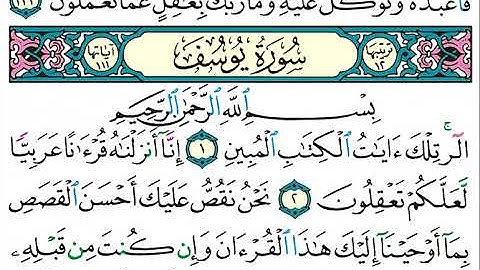 فَاعْبُدْهُ وَتَوَكَّلْ عَلَيْهِ وَمَا رَبُّكَ بِغَافِلٍ عَمَّا تَعْمَلُونَ ١٢٣
ترتيبها ١٢ سُورَةُ يُوسُفَ آياتها ١١١
بِسْمِ اللَّهِ الرَّحْمَٰنِ الرَّحِيمِ
الٓرۚ تِلْكَ ءَايَٰتُ الْكِتَٰبِ الْمُبِينِ ١ إِنَّآ أَنزَلْنَٰهُ قُرْءَٰنًا عَرَبِيًّا
لَّعَلَّكُمْ تَعْقِلُونَ ٢ نَحْنُ نَقُصُّ عَلَيْكَ أَحْسَنَ الْقَصَصِ
بِمَآ أَوْحَيْنَآ إِلَيْكَ هَٰذَا الْقُرْءَانَ وَإِن كُنتَ مِن قَبْلِهِۦ